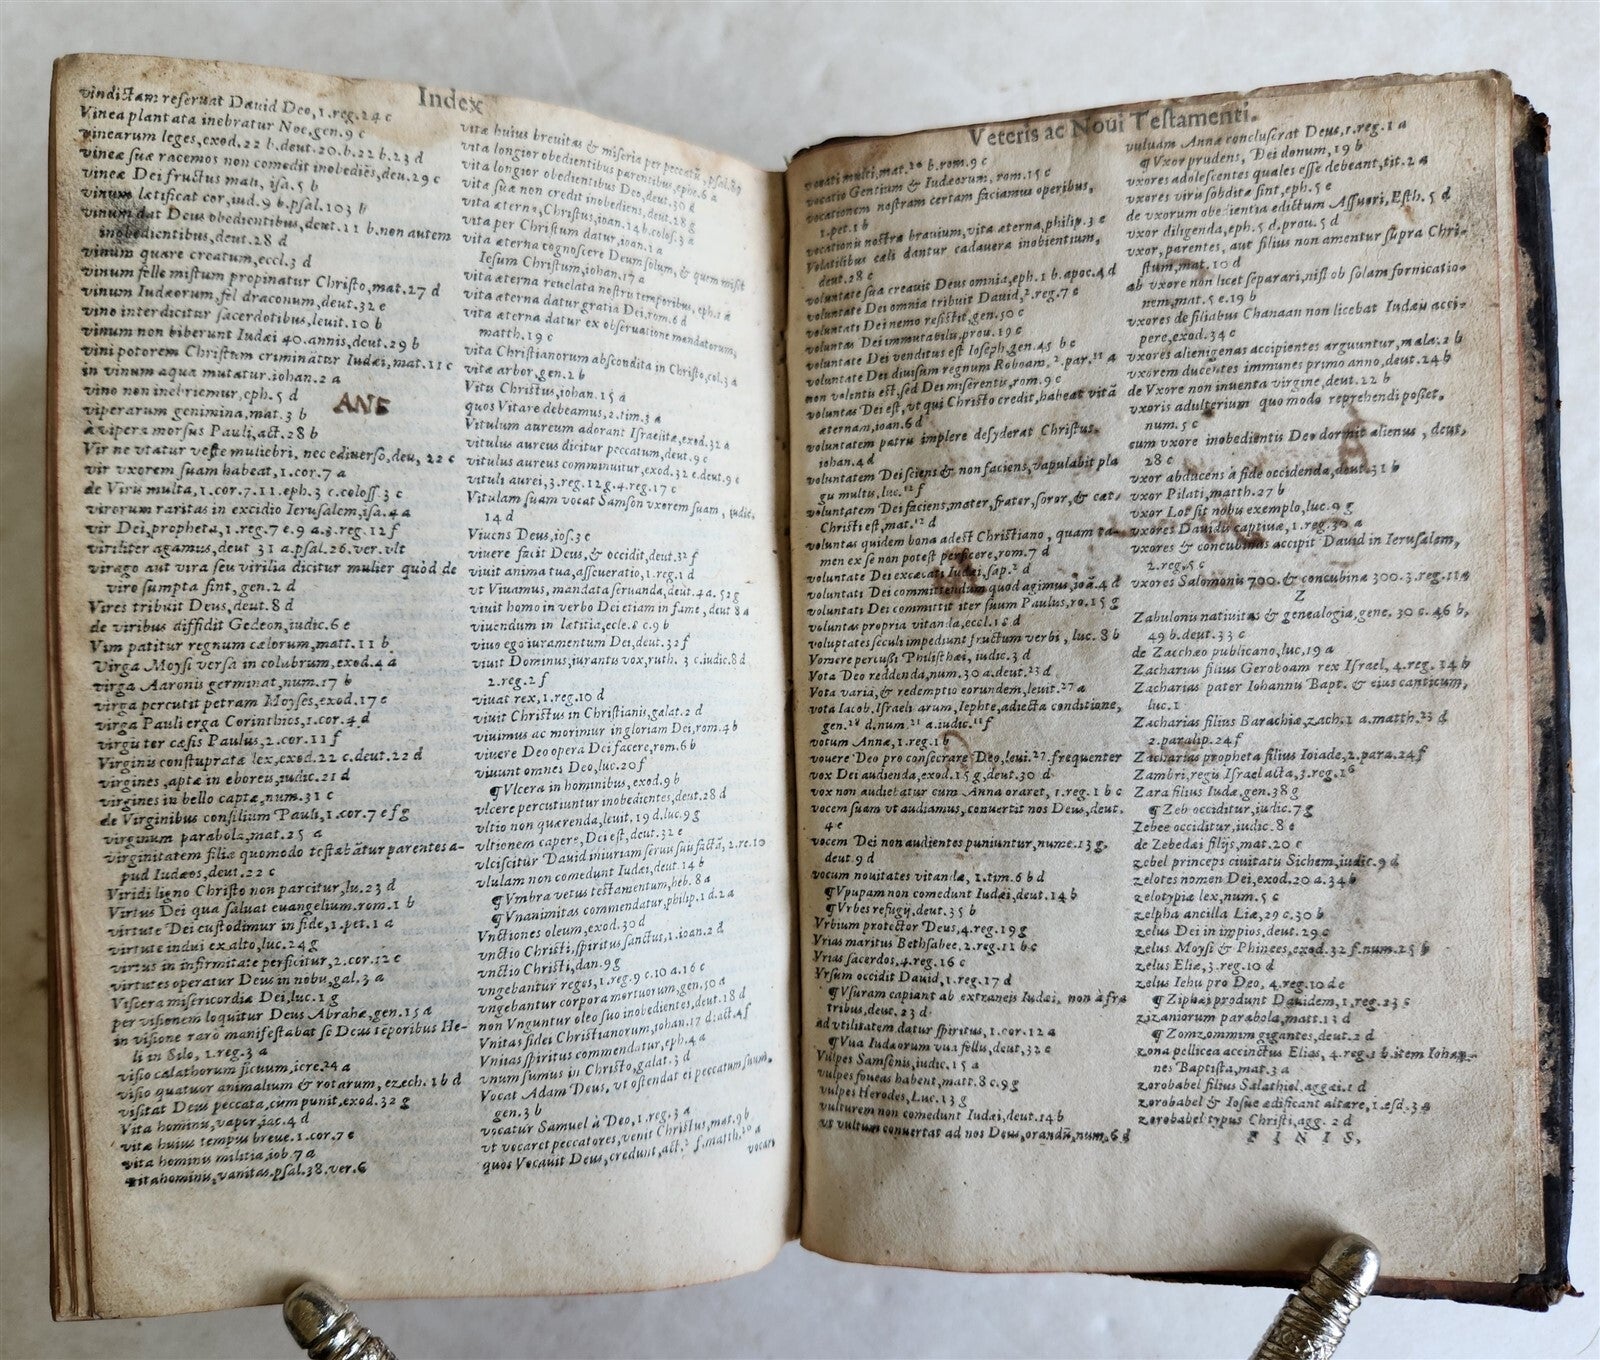 Index
vindictam reseruat Dauid Deo, 1.reg.24 c
Vinea plantata inebratur Noe, gen.9 c
vinearum leges, exod.22 b.deut.20.b.22 b.23 d
vineæ suæ racemos non comedit inobediẽs, deu.29 c
vineæ Dei fructus mali, isa.5 b
vinum lætificat cor, iud.9 b.psal.103 b
vinum dat Deus obedientibus, deut.11 b.non autem
inobedientibus, deut.28 d
vinum quare creatum, eccl.3 d
vinum felle mistum propinatur Christo, mat.27 d
vinum Iudæorum, fel draconum, deut.32 e
vino interdicitur sacerdotibus, leuit.10 b
vinum non biberunt Iudæi 40.annis, deut.29 b
vini potorem Christum criminãtur Iudæi, mat.11 c
in vinum aqua mutatur.iohan.2 a
vino non inebriemur, eph.5 d
ANE
viperarum genimina, mat.3 b
à vipera morsus Pauli, act.28 b
Vir ne vtatur veste muliebri, nec ediuerso, deu, 22 c
vir vxorem suam habeat, 1.cor.7 a
de Viris multa, 1.cor.7.11.eph.3 c.coloss.3 c
virorum raritas in excidio Ierusalem, isa.4 a
vir Dei, propheta, 1.reg.7 e.9 a.3.reg.12 f
viriliter agamus, deut 31 a.psal.26.ver.vlt
virago aut vira seu virilia dicitur mulier quòd de
viro sumpta sint, gen.2 d
Vires tribuit Deus, deut.8 d
de viribus diffidit Gedeon, iudic.6 e
Vim patitur regnum cælorum, matt.11 b
Virga Moysi versa in colubrum, exod.4 a
virga Aaronis germinat, num.17 b
virga percutit petram Moyses, exod.17 c
virga Pauli erga Corinthios, 1.cor.4 d
virgis ter cæsis Paulus, 2.cor.11 f
Virginis constupratæ lex, exod.22 c.deut.22 d
virgines, aptæ in eboreis, iudic.21 d
virgines in bello captæ, num.31 c
de Virginibus consilium Pauli, 1.cor.7 e f g
virginum parabola, mat.25 a
virginitatem filiæ quomodo testabãtur parentes a-
pud Iudæos, deut.22 c
Viridi ligno Christo non parcitur, lu.23 d
Virtus Dei qua saluat euangelium.rom.1 b
virtute Dei custodimur in fide, 1.pet.1 a
virtute indui ex alto, luc.24 g
virtus in infirmitate perficitur, 2.cor.12 c
virtutes operatur Deus in nobis, gal.3 a
Viscera misericordiæ Dei, luc.1 g
per visionem loquitur Deus Abrahæ, gen.15 a
in visione rarò manifestabat se Deus tẽporibus He-
li in Silo, 1.reg.3 a
visio calathorum ficuum, iere.24 a
visio quatuor animalium & rotarum, ezech.1 b d
visitat Deus peccata, cum punit, exod.32 g
Vita hominis, vapor, iac.4 d
vitæ huius tempus breue.1.cor.7 e
vita hominis militia, iob.7 a
vita hominis, vanitas.psal.38.ver.6
vitæ huius breuitas & miseria per peccatũ, psal.89
vita longior obedientibus parentibus, ephe.6 a
vita longior obedientibus Deo, deut.30 d
vita sua non credit inobediens, deut.28 g
vita æterna, Christus, ioan.14 b.colos.3 a
vita per Christum datur, ioan.1 a
vita æterna cognoscere Deum solum, & quem misit
Iesum Christum, iohan.17 a
vita æterna reuelata nostris temporibus, eph.1 a
vita æterna datur gratia Dei, rom.6 d
vita æterna datur ex obseruatione mandatorum,
matth.19 c
vita Christianorum abscondita in Christo, col.3 a
vitæ arbor, gen.2 b
Vitis Christus, iohan.15 a
quos Vitare debeamus, 2.tim.3 a
Vitulum aureum adorant Israelitæ, exod.32 a
vitulus aureus dicitur peccatum, deut.9 c
vitulus aureus comminuitur, exod.32 e.deut.9 c
vituli aurei, 3.reg.12 g.4.reg.17 c
Vitulam suam vocat Samsõn vxorem suam, iudic.
14 d
Viuens Deus, ios.3 c
viuere facit Deus, & occidit, deut.32 f
viuit anima tua, asseueratio, 1.reg.1 d
vt Viuamus, mandata seruanda, deut.4 a. 52 g
viuit homo in verbo Dei etiam in fame, deut 8 a
viuendum in lætitia, eccle.8 c.9 b
viuo ego iuramentum Dei, deut.32 f
viuit Dominus, iurantis vox, ruth. 3 c.iudic.8 d
2.reg.2 f
viuat rex, 1.reg.10 d
viuit Christus in Christianis, galat.2 d
viuimus ac morimur in gloriam Dei, rom.4 b
viuere Deo opera Dei facere, rom.6 b
viuunt omnes Deo, luc.20 f
¶ Vlcera in hominibus, exod.9 b
vlcere percutiuntur inobedientes, deut.28 d
vltio non quærenda, leuit.19 d.luc.9 g
vltionem capere, Dei est, deut.32 e
vlciscitur Dauid iniuriam seruis suis factã, 2.re.10
vlulam non comedunt Iudæi, deut.14 b
¶ Vmbra vetus testamentum, heb.8 a
¶ Vnanimitas commendatur, philip.1 d.2 a
Vnctiones oleum, exod.30 d
vnctio Christi, spiritus sanctus, 1.ioan.2 d
vnctio Christi, dan.9 g
vngebantur reges, 1.reg.9 c.10 a.16 c
vngebantur corpora mortuorum, gen.50 a
non Vnguntur oleo suo inobedientes, deut.28 d
Vnitas fidei Christianorum, iohan.17 d; act.4 f
Vnitas spiritus commendatur, eph.4 a
vnum sumus in Christo, galat.3 d
Vocat Adam Deus, vt ostendat ei peccatum suum.
gen.3 b
vocatur Samuel à Deo, 1.reg.3 a
vt vocaret peccatores, venit Christus, mat.9 b
quos Vocauit Deus, credunt, act.2 f, matth.20 a
vocati
Veteris ac Noui Testamenti.
vocati multi, mat.20 b.rom.9 c
vocatio Gentium & Iudæorum, rom.15 c
vocationem nostram certam faciamus operibus,
1.pet.1 b
vocationis nostræ brauium, vita æterna, philip.3 e
Volatilibus cæli dantur cadauera inobientium,
deut.28 c
voluntate sua creauit Deus omnia, eph.1 b.apoc.4 d
voluntate Dei omnia tribuit Dauid, 2.reg.7 e
voluntati Dei nemo resistit, gen.50 c
voluntas Dei immutabilis, prou.19 c
voluntate Dei venditus est Ioseph, gen.45 b c
voluntate Dei diuisum regnum Roboam, 2.par.11 a
non volentis est, sed Dei miserentis, rom.9 c
voluntas Dei est, vt qui Christo credit, habeat vitã
æternam, ioan.6 d
voluntatem patris implere desyderat Christus.
iohan.4 d
voluntatem Dei sciens & non faciens, vapulabit pla
gis multis, luc.12 f
voluntatem Dei faciens, mater, frater, soror, & cæt.
Christi est, mat.12 d
voluntas quidem bona adest Christiano, quam ta-
men ex se non potest perficere, rom.7 d
voluntate Dei excæcati Iudæi, sap.2 d
voluntati Dei committendum quod agimus, ioã.4 d
voluntati Dei committit iter suum Paulus, ro.15 g
voluntas propria vitanda, eccl.18 d
voluptates seculi impediunt fructum verbi, luc.8 b
Vomere percussi Philisthæi, iudic.3 d
Vota Deo reddenda, num.30 a.deut.23 d
Vota varia, & redemptio eorundem, leuit.27 a
vota Iacob, Israeli arum, Iephte, adiecta conditione,
gen.28 d.num.21 a.iudic.11 f
votum Annæ, 1.reg.1 b
vouere Deo pro consecrare Deo, leui.27.frequenter
vox Dei audienda, exod.15 g, deut.30 d
vox non audiebatur cum Anna oraret, 1.reg.1 b c
vocem suam vt audiamus, conuertit nos Deus, deut.
4 e
vocem Dei non audientes puniuntur, nume.13 g.
deut.9 d
vocum nouitates vitandæ, 1.tim.6 b d
¶ Vpupam non comedunt Iudæi, deut.14 b
¶ Vrbes refugij, deut.35 b
Vrbium protector Deus, 4.reg.19 g
Vrias maritus Bethsabee, 2.reg.11 b c
Vrias sacerdos, 4.reg.16 c
Vrsum occidit Dauid, 1.reg.17 d
¶ Vsuram capiant ab extraneis Iudæi, non à fra
tribus, deut.23 d
ad vtilitatem datur spiritus, 1.cor.12 a
¶ Vua Iudæorum vua fellis, deut.32 e
Vulpes Samsonis, iudic.15 a
vulpes foueas habent, matt.8 c.9 g
vulpes Herodes, Luc.13 g
vulturem non comedunt Iudæi, deut.14 b
vt vultum conuertat ad nos Deus, orandũ, num.6 d
vuluam Annæ concluserat Deus, 1.reg.1 a
¶ Vxor prudens, Dei donum, 19 b
vxores adolescentes quales esse debeant, tit.2 a
vxores viris subditæ sint, eph.5 e
de vxorum obedientia edictum Assueri, Esth.5 d
vxor diligenda, eph.5 d.prou.5 d
vxor, parentes, aut filius non amentur supra Chri-
stum, mat.10 d
ab vxore non licet separari, nisi ob solam fornicatio-
nem, mat.5 e.19 b
vxores de filiabus Chanaan non licebat Iudæis acci-
pere, exod.34 c
vxores alienigenas accipientes arguuntur, mala.2 b
vxorem ducentes immunes primo anno, deut.24 b
de Vxore non inuenta virgine, deut.22 b
vxoris adulterium quomodo reprehendi posset,
num.5 c
cum vxore inobedientis Deo dormit alienus, deut,
28 c
vxor abducens à fide occidenda, deut.31 b
vxor Pilati, matth.27 b
vxor Lot sit nobis exemplo, luc.9 g
vxores Dauidis captiuæ, 1.reg.30 a
vxores & concubinas accipit Dauid in Ierusalem,
2.reg.5 c
vxores Salomonis 700. & concubinæ 300.3.reg.11 a
Z
Zabulonis natiuitas & genealogia, gene. 30 c. 46 b,
49 b.deut.33 c
de Zacchæo publicano, luc, 19 a
Zacharias filius Geroboam rex Israel, 4.reg.14 b
Zacharias pater Iohannis Bapt. & eius canticum,
luc.1
Zacharias filius Barachiæ, zach.1 a.matth.23 d
2.paralip.24 f
Zacharias propheta filius Ioiade, 2.para.24 f
Zambri, regis Israel acta, 3.reg.16
Zara filius Iudæ, gen.38 g
¶ Zeb occiditur, iudic.7 g
Zebee occiditur, iudic.8 e
de Zebedæi filijs, mat.20 c
zebel princeps ciuitatis Sichem, iudic.9 d
zelotes nomen Dei, exod.20 a.34 b
zelotypiæ lex, num.5 c
zelpha ancilla Liæ, 29 c.30 b
zelus Dei in impios, deut.29 c
zelus Moysi & Phinees, exod.32 f.num.25 b
zelus Eliæ, 3.reg.10 d
zelus Iehu pro Deo, 4.reg.10 d e
¶ Ziphæi produnt Dauidem, 1.reg.23 c
zizaniorum parabola, matt.13 d
¶ Zomzommim gigantes, deut.2 d
zona pellicea accinctus Elias, 4.reg.1 b.item Iohan-
nes Baptista, mat.3 a
zorobabel filius Salathiel.aggæi.1 d
zorobabel & Iosue ædificant altare, 1.esd.3 a
zorobabel typus Christi, agg.2 d
FINIS,